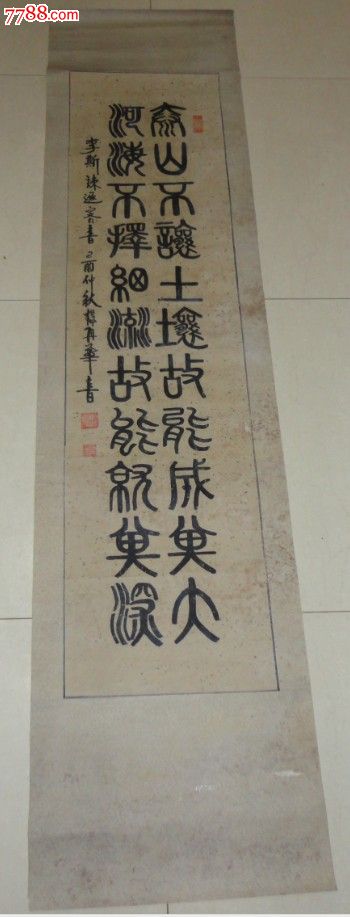 7788.com
泰山不讓土壤故能成其大
河海不擇細流故能就其深
李斯諫逐客書 酉仲秋 書